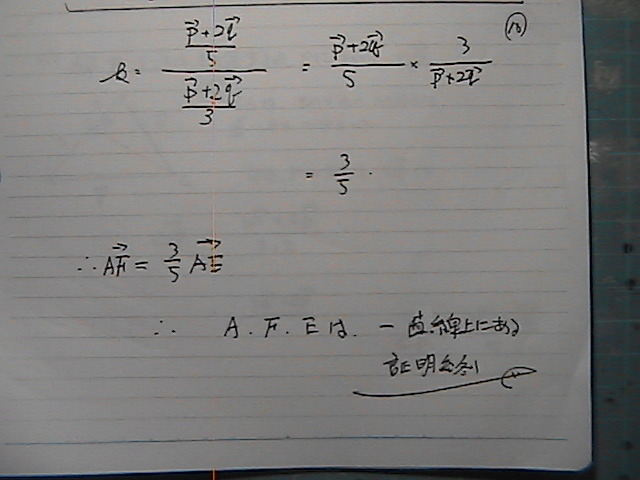 ⑬
k = (p⃗+2q⃗)/5 / (p⃗+2q⃗)/3 = (p⃗+2q⃗)/5 × 3/(p⃗+2q⃗)
= 3/5.
∴ AF⃗ = 3/5 AE⃗
∴ A. F. E は. 一直線上にある
証明終